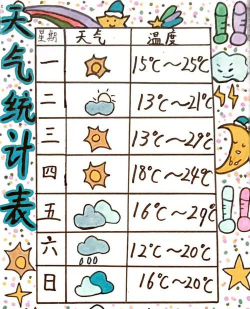 天气统计表
星期 天气 温度
一 15℃～25℃
二 13℃～21℃
三 13℃～29℃
四 18℃～24℃
五 16℃～29℃
六 12℃～20℃
日 16℃～20℃